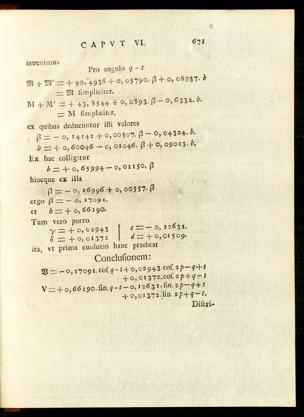 CAPVT VI. 671
invenimus
Pro angulo q - t
𝔐 + 𝔐′ = + 99, 4936 + 0, 05790. β + 0, 08937. b
= 𝔐 simpliciter.
M + M′ = + 43, 8544 + 0, 0893. β − 0, 6332. b.
= M simpliciter.
ex quibus deducuntur isti valores
β = − 0, 14142 + 0, 00507. β − 0, 04324. b.
b = + 0, 60046 − 0, 01046. β + 0, 09013. b.
Ex hac colligitur
b = + 0, 65994 − 0, 01150. β
hincque ex illa
β = − 0, 16996 + 0, 00557. β
ergo β = − 0, 17091.
et b = + 0, 66190.
Tum vero porro
γ = + 0, 02943 | c = − 0, 12631.
δ = + 0, 01372 | d = + 0, 01509.
ita, vt prima euolutio hanc praebeat
Conclusionem:
𝔙 = − 0, 17091. cos. q - t + 0, 02943. cos. 2p − q + t
+ 0, 01372. cos. 2p + q - t.
V = + 0, 66190. sin. q - t − 0, 12631. sin. 2p − q + t
+ 0, 01372. sin. 2p + q - t.
Distri-